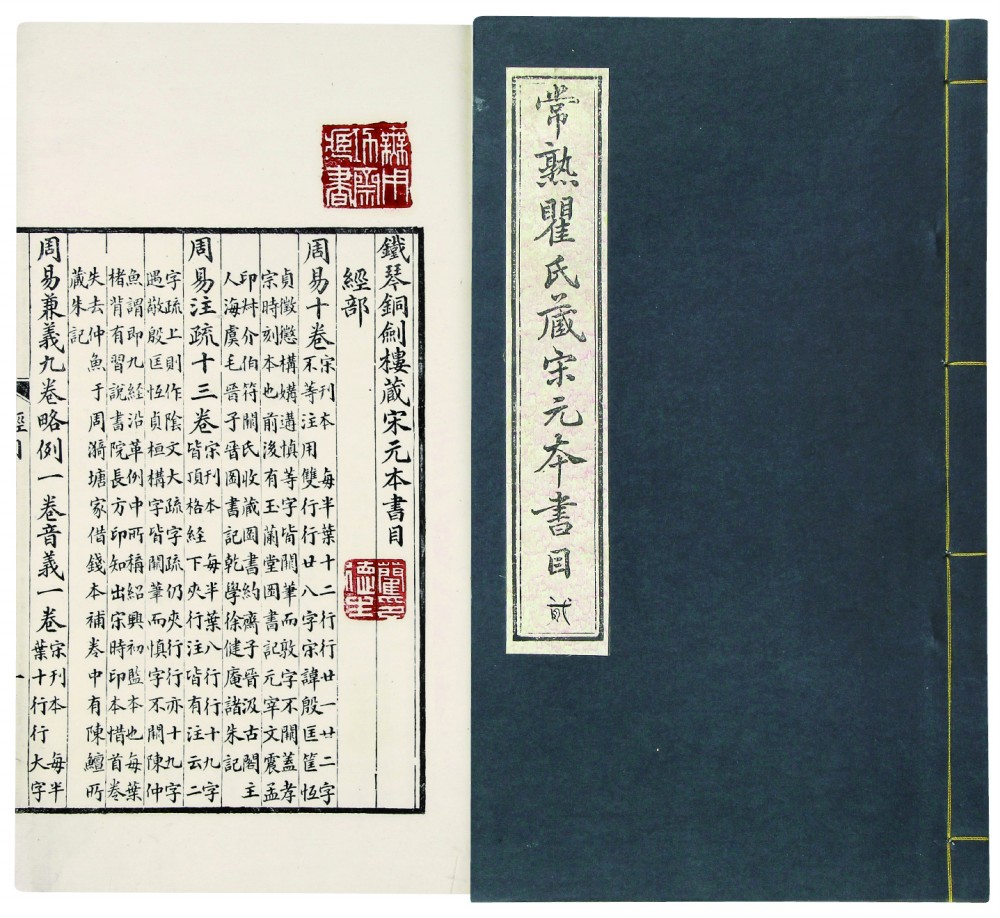 常熟瞿氏藏宋元本書目 貳
鐵琴銅劍樓藏宋元本書目
經部
周易十卷
宋刊本 每半葉十二行行廿一廿二字
不等注用雙行行廿八字宋諱殷匡筐恆
貞徵懲構媾遘慎等字皆闕筆而敦字不闕蓋孝
宗時刻本也前後有玉蘭堂圖書記元宰文震孟
印介伯符關氏收藏圖書約齋子晉汲古閣主
人海虞毛晉子晉圖書記乾學徐健庵諸朱記
周易注疏十三卷
宋刊本 每半葉八行行十九字
皆頂格經下夾行注皆有注云二
字疏上則作陰文大疏字疏仍夾行行亦十九字
遇敬殷匡恆貞桓構字皆闕筆而慎字不闕陳仲
魚謂即九經沿革例中所稱紹興初監本也每葉
楮背有習說書院長方印知出宋時印本惜首卷
失去仲魚于周漪塘家借錢本補卷中有陳鱣所
藏朱記
周易兼義九卷略例一卷音義一卷
宋刊本 每半
葉十行行大字